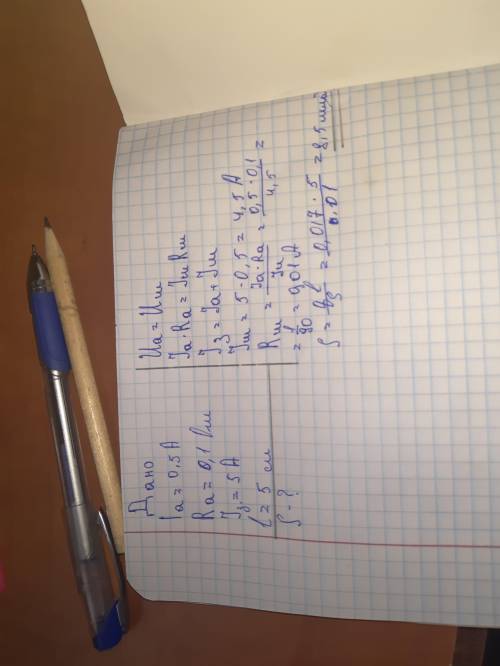 Дано
Iа = 0,5 А
Rа = 0,1 Ом
Iз = 5 А
l = 5 см
S - ?
Uа = Uш
Iа · Rа = Iш Rш
Iз = Iа + Iш
Iш = 5 - 0,5 = 4,5 А
Rш = Iа · Rа / Iш = 0,5 · 0,1 / 4,5 =
= 1/90 = 0,01 А
S = l / S = 0,017 · 5 / 0,01 = 8,5 мм²